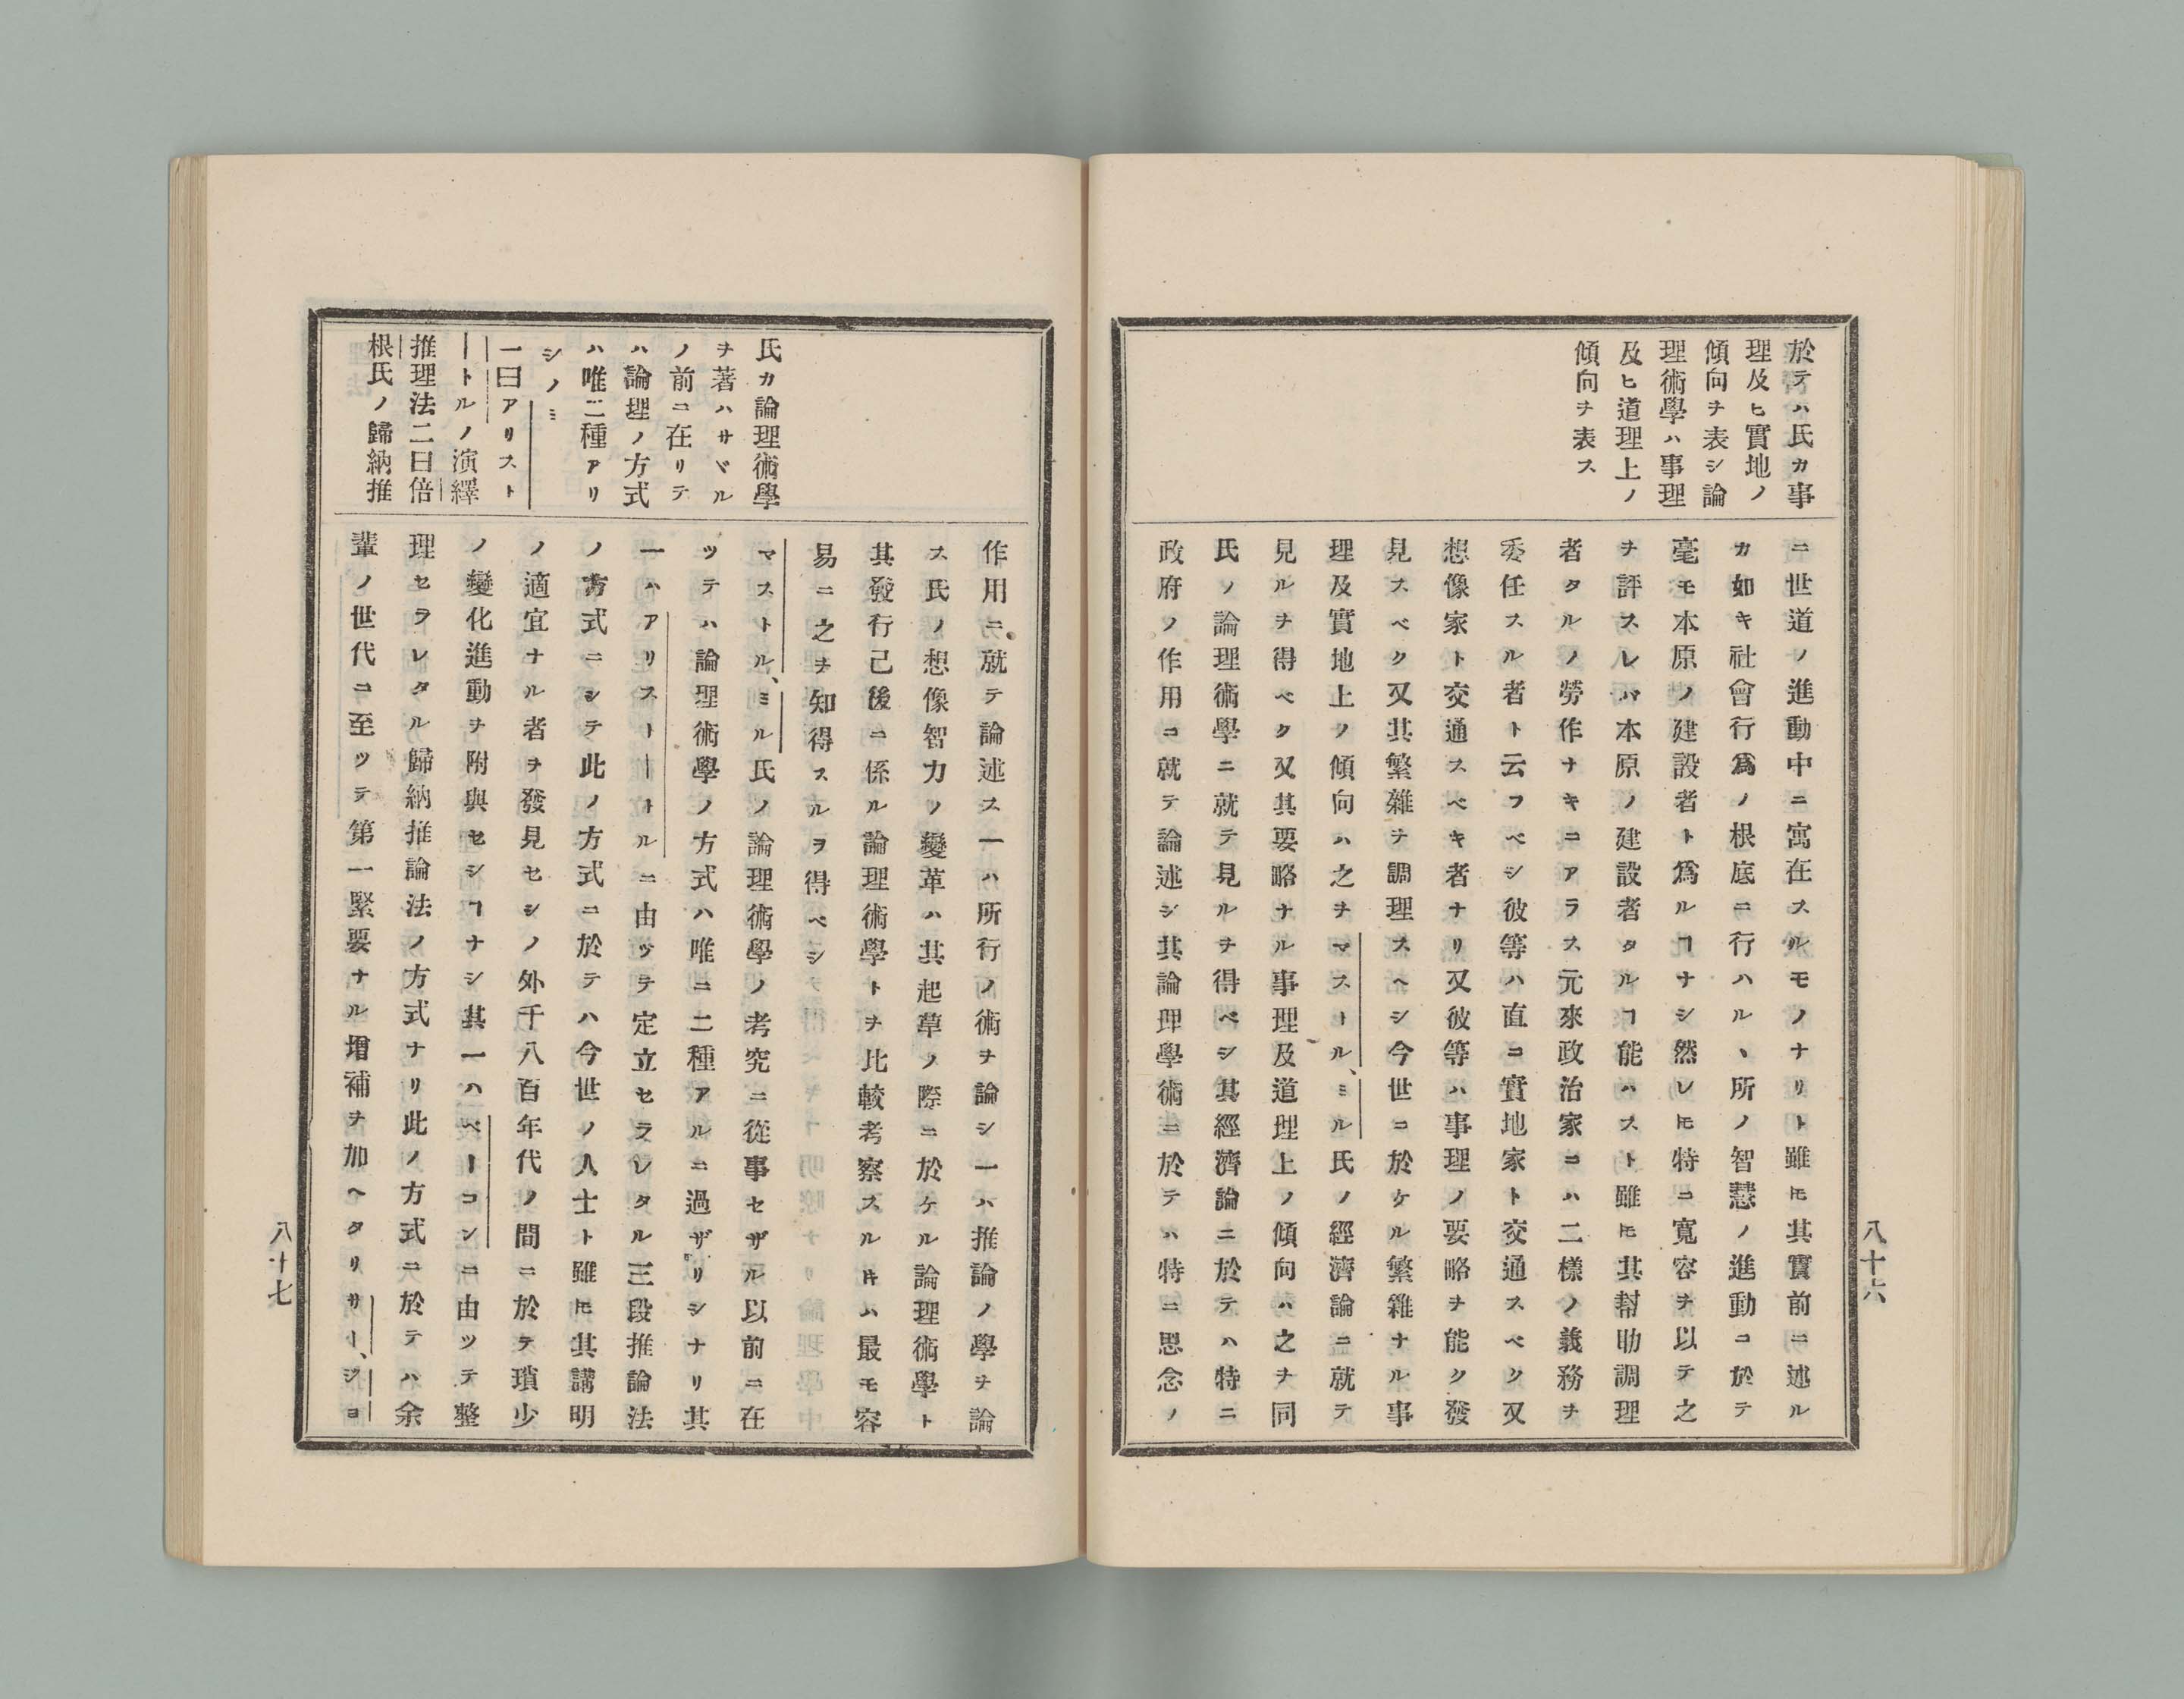 於テハ氏カ事
理及ヒ實地ノ
傾向ヲ表シ論
理術學ハ事理
及ヒ道理上ノ
傾向ヲ表ス
ニ世道ノ進動中ニ寓在スルモノナリト雖𪜈其實前ニ述ル
カ如キ社會行爲ノ根底ニ行ハル、所ノ智慧ノ進動ニ於テ
毫モ本原ノ建設者ト爲ルヿナシ然レ𪜈特ニ寬容ヲ以テ之
ヲ評スレバ本原ノ建設者タルヿ能ハスト雖𪜈其幇助調理
者タルノ勞作ナキニアラス元來政治家ニハ二樣ノ義務ヲ
委任スル者ト云フベシ彼等ハ直ニ實地家ト交通スベク又
想像家ト交通スベキ者ナリ又彼等ハ事理ノ要略ヲ能ク發
見スベク又其繁雜ヲ調理スヘシ今世ニ於ケル繁雜ナル事
理及實地上ノ傾向ハ之ヲマストル、ミル氏ノ經濟論ニ就テ
見ルヲ得ベク又其要略ナル事理及道理上ノ傾向ハ之ヲ同
氏ノ論理術學ニ就テ見ルヲ得ベシ其經濟論ニ於テハ特ニ
政府ノ作用ニ就テ論述シ其論理學術ニ於テハ特ニ思念ノ
八十六
氏カ論理術學
ヲ著ハサヾル
ノ前ニ在リテ
ハ論理ノ方式
ハ唯二種アリ
シノミ
一曰アリスト
ートルノ演繹
推理法二曰倍
根氏ノ歸納推
作用ニ就テ論述ス一ハ所行ノ術ヲ論シ一ハ推論ノ學ヲ論
ス氏ノ想像智力ノ變革ハ其起草ノ際ニ於ケル論理術學ト
其發行己後ニ係ル論理術學トヲ比較考察スル𪜈ハ最モ容
易ニ之ヲ知得スルヲ得ベシ
マストル、ミル氏ノ論理術學ノ考究ニ從事セザル以前ニ在
ツテハ論理術學ノ方式ハ唯ニ二種アルニ過ザリシナリ其
一ハアリストートルニ由ツテ定立セラレタル三段推論法
ノ方式ニシテ此ノ方式ニ於テハ今世ノ人士ト雖𪜈其講明
ノ適宜ナル者ヲ發見セシノ外千八百年代ノ間ニ於テ瑣少
ノ變化進動ヲ附與セシヿナシ其一ハベーコンニ由ツテ整
理セラレタル歸納推論法ノ方式ナリ此ノ方式ニ於テハ余
輩ノ世代ニ至ツテ第一緊要ナル增補ヲ加ヘタリサー、ジヨ
八十七